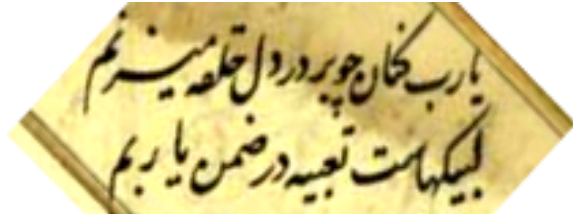 یارب کنان چو بر در دل حلقه میزنم
لبیکهاست تعبیه در ضمن یا ربم